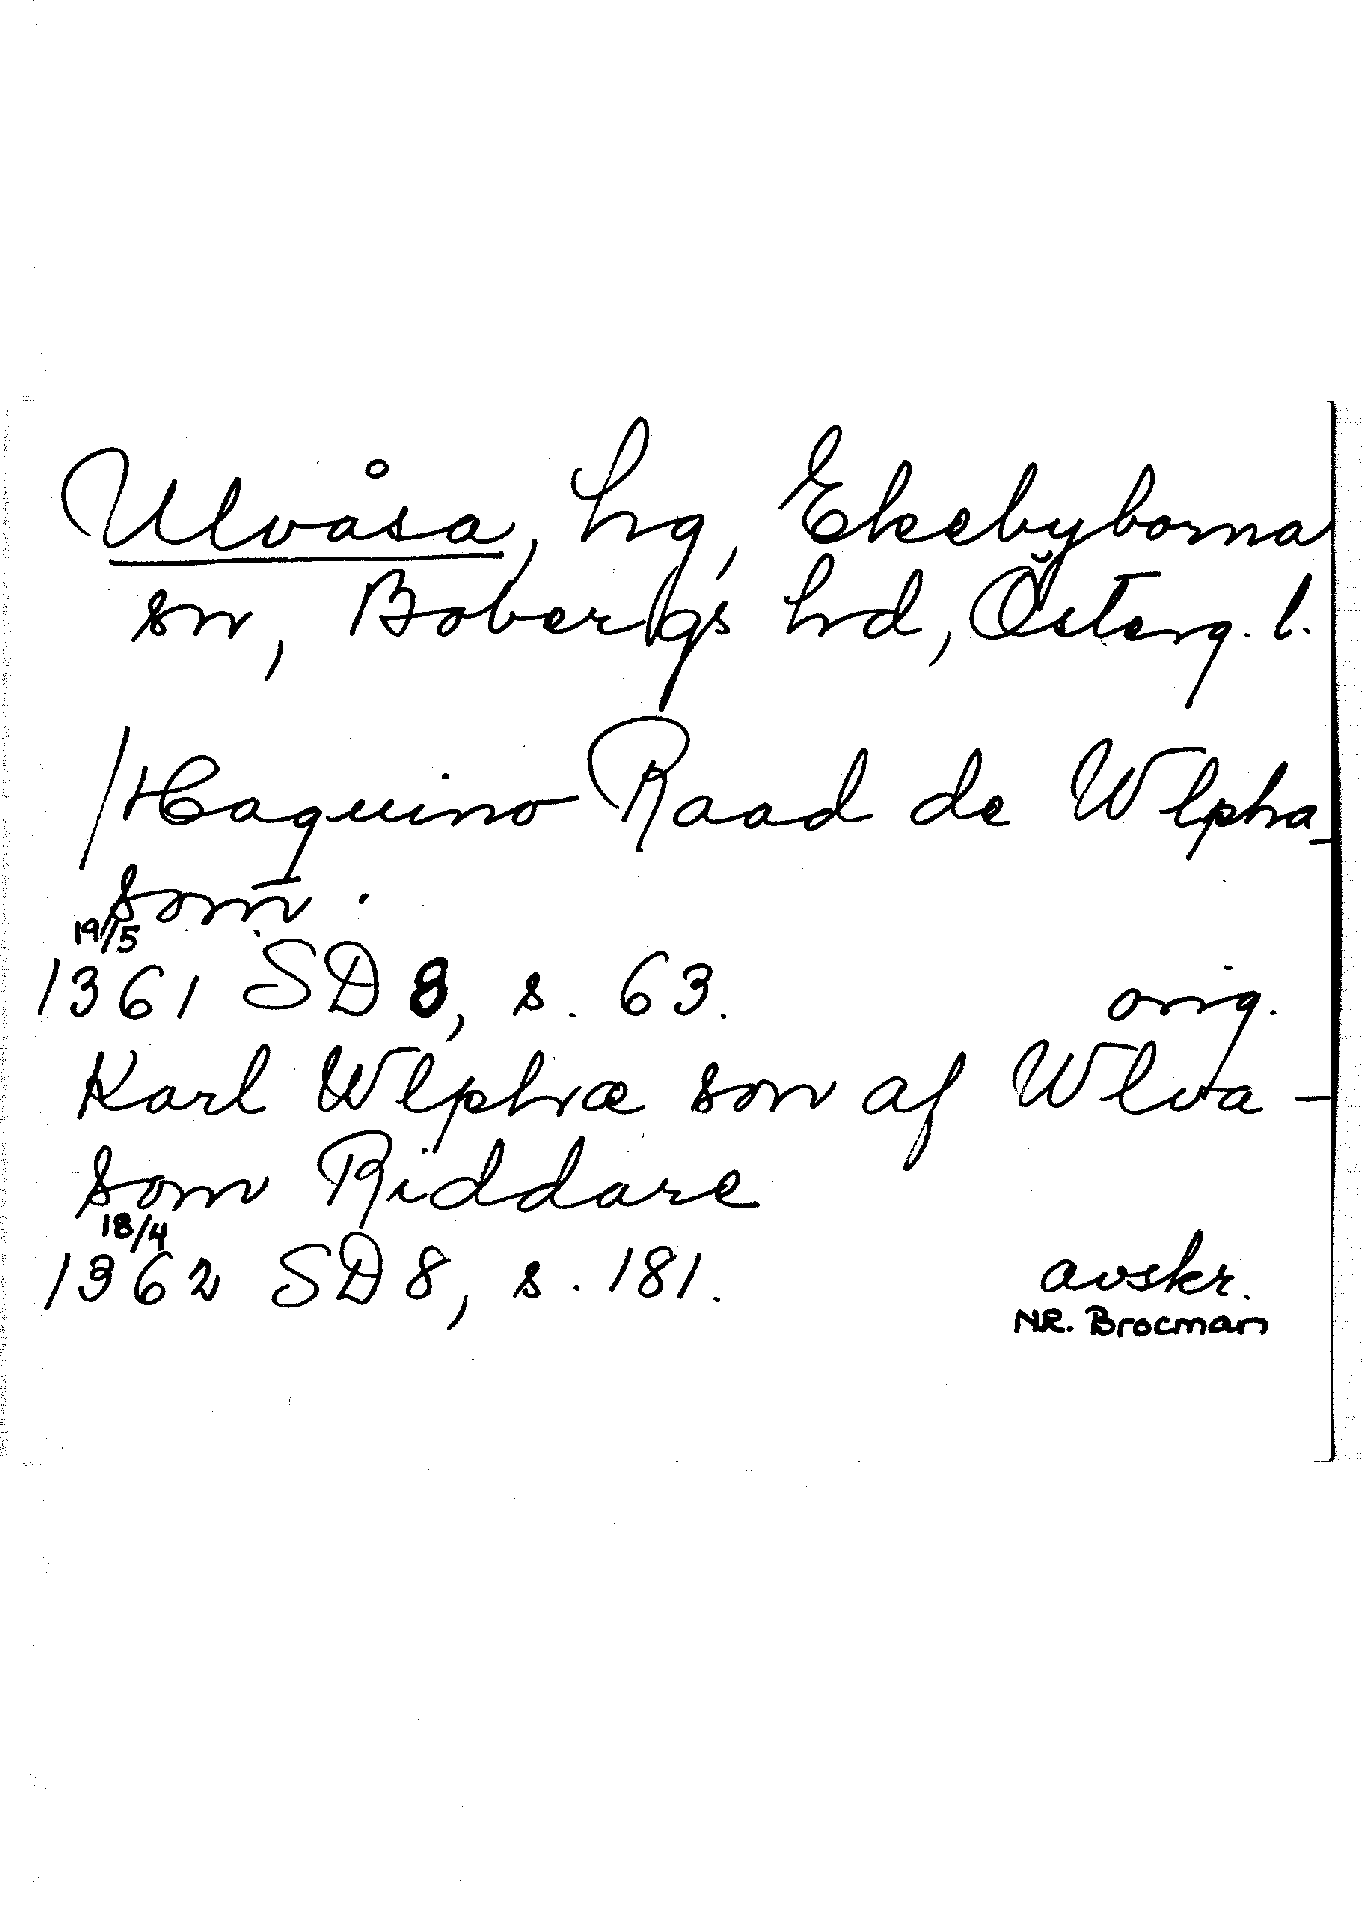 Ulvåsa, hg, Ekebyborna
sn, Bobergs hd, Österg. l.
/Haquino Raad de Wlpha_
som̄.
19/5
1361 SD 8, s. 63. orig.
Karl Wlphæ son af Wlva -
som Riddare
18/4
1362 SD 8, s. 181. avskr.
N.R. Brocman